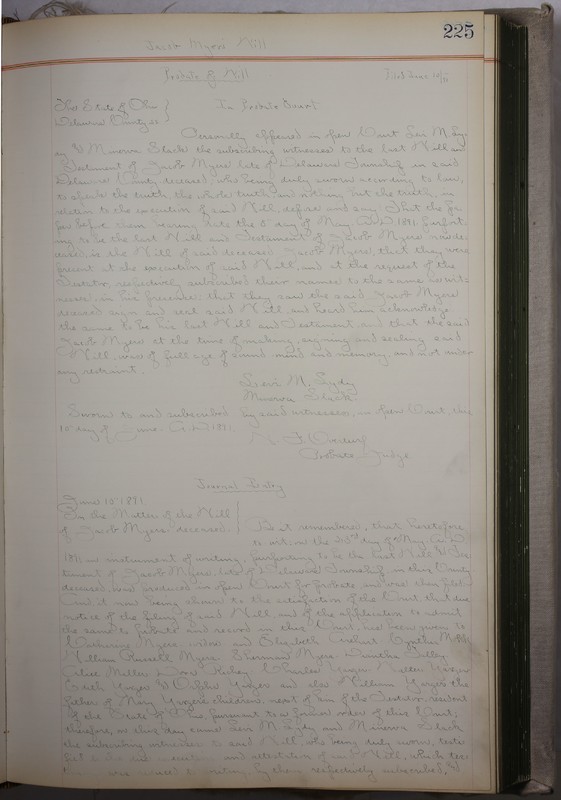 225
Jacob Myers Will
Probate of Will Filed June 10/91
The State of Ohio
Delaware County ss } In Probate Court
Personally appeared in open Court Levi M. Ey-
dy & Minerva Slack the subscribing witnesses to the last Will and
Testament of Jacob Myers late of Delaware Township in said
Delaware County, deceased, who being duly sworn according to law,
to speak the truth, the whole truth, and nothing but the truth, in
relation to the execution of said Will, depose and say; that the pa-
per before them bearing date the 8" day of May, A.D. 1891, purport-
ing to be the last Will and Testament of Jacob Myers now de-
ceased is the Will of said deceased Jacob Myers, that they were
present at the execution of said Will, and at the request of the
Testator, respectively subscribed their names to the same as wit-
nesses, in his presence; that they saw the said Jacob Myers
deceased sign and seal said Will and heard him acknowledge
the same to be his last Will and Testament, and that the said
Jacob Myers at the time of making, signing and sealing said
Will, was of full age of sound mind and memory, and not under
any restraint.
Levi M. Eydy
Minerva Slack
Sworn to and subscribed by said witnesses, in open Court, this
10" day of June A.D. 1891.
Overturf
Probate Judge
Journal Entry
June 10" 1891
In the Matter of the Will
of Jacob Myers deceased. Be it remembered, that heretofore
to wit: on the day of May A.D.
1891 an instrument of writing purporting to be the last Will & Tes-
tament of Jacob Myers, late of Delaware Township in this County
deceased, was produced in open Court for probate and was then filed.
And, it now being shown to the satisfaction of the Court that due
notice of the filing of said Will, and of the application to admit
the same to probate and record in this Court has been given to
Catherine Myers, widow and Elizabeth
William Russell Myers Sherman Myers
Alice Miller Dora Charles Yarger Yarger
Edith Yarger & Yarger and also William Yarger the
father of Mary Yargers children, next of kin of the Testator, resident
of the State of Ohio, pursuant to a former order of this Court;
therefore, on this day came Levi M. Eydy and Minerva Slack
the subscribing witnesses to said Will, who being duly sworn, testi-
fied to the due execution and attestation of said Will, which tes-
timony was reduced to writing, by them respectively subscribed, &